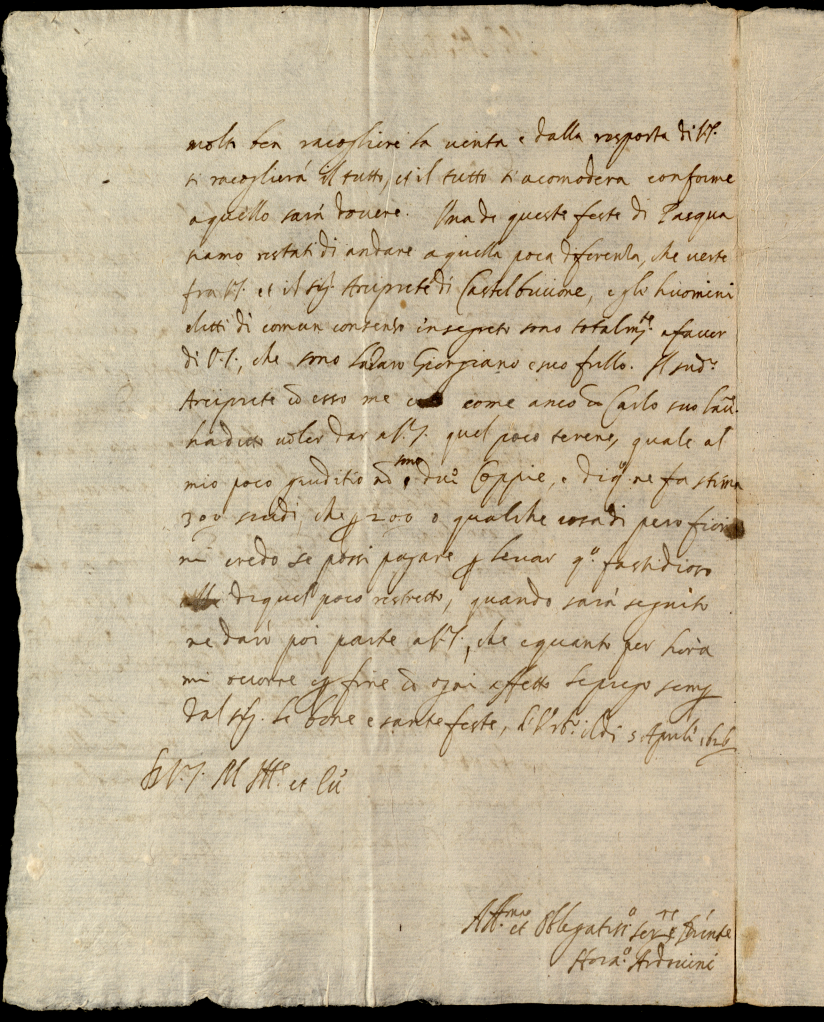 molto ben racogliere la uerita e dalla resposta di V.S.
si racoglierá il tutto, et il tutto si acomodera conforme
a quello sará douere. Una de queste feste di Pasqua
siamo restati di andare a quella poca diferenza, che uerte
fra V.S. et il sig. Arciprete di Castelbuccione, e gli huomini
eletti di comun consenso in segreto sono totalm.te a fauor
di V.S., che sono Lazaro Georgiano e suo frello. Il sud.o
Arciprete cõ esso me come anco cõ Carlo suo
ha detto uoler dar a V.S. quel poco terreno, quale al
mio poco giuditio nõ sono due Coppie, e di q.o ne fa stima
300 scudi, che p 200 o qualche cosa di
mi credo se possi pagare p leuar q.o fastidioso
di quel poco restretto, quando sará seguito
ne daró poi parte a V.S., che e quanto per hora
mi occorre e p fine cõ ogni affetto le prego semp
dal sig. le bone e sante feste, di 5 Aprile 1626
Di V.S. M Ill.e et
Aff.mo et Obligatiss.o ser.re
Hora.o Arduini